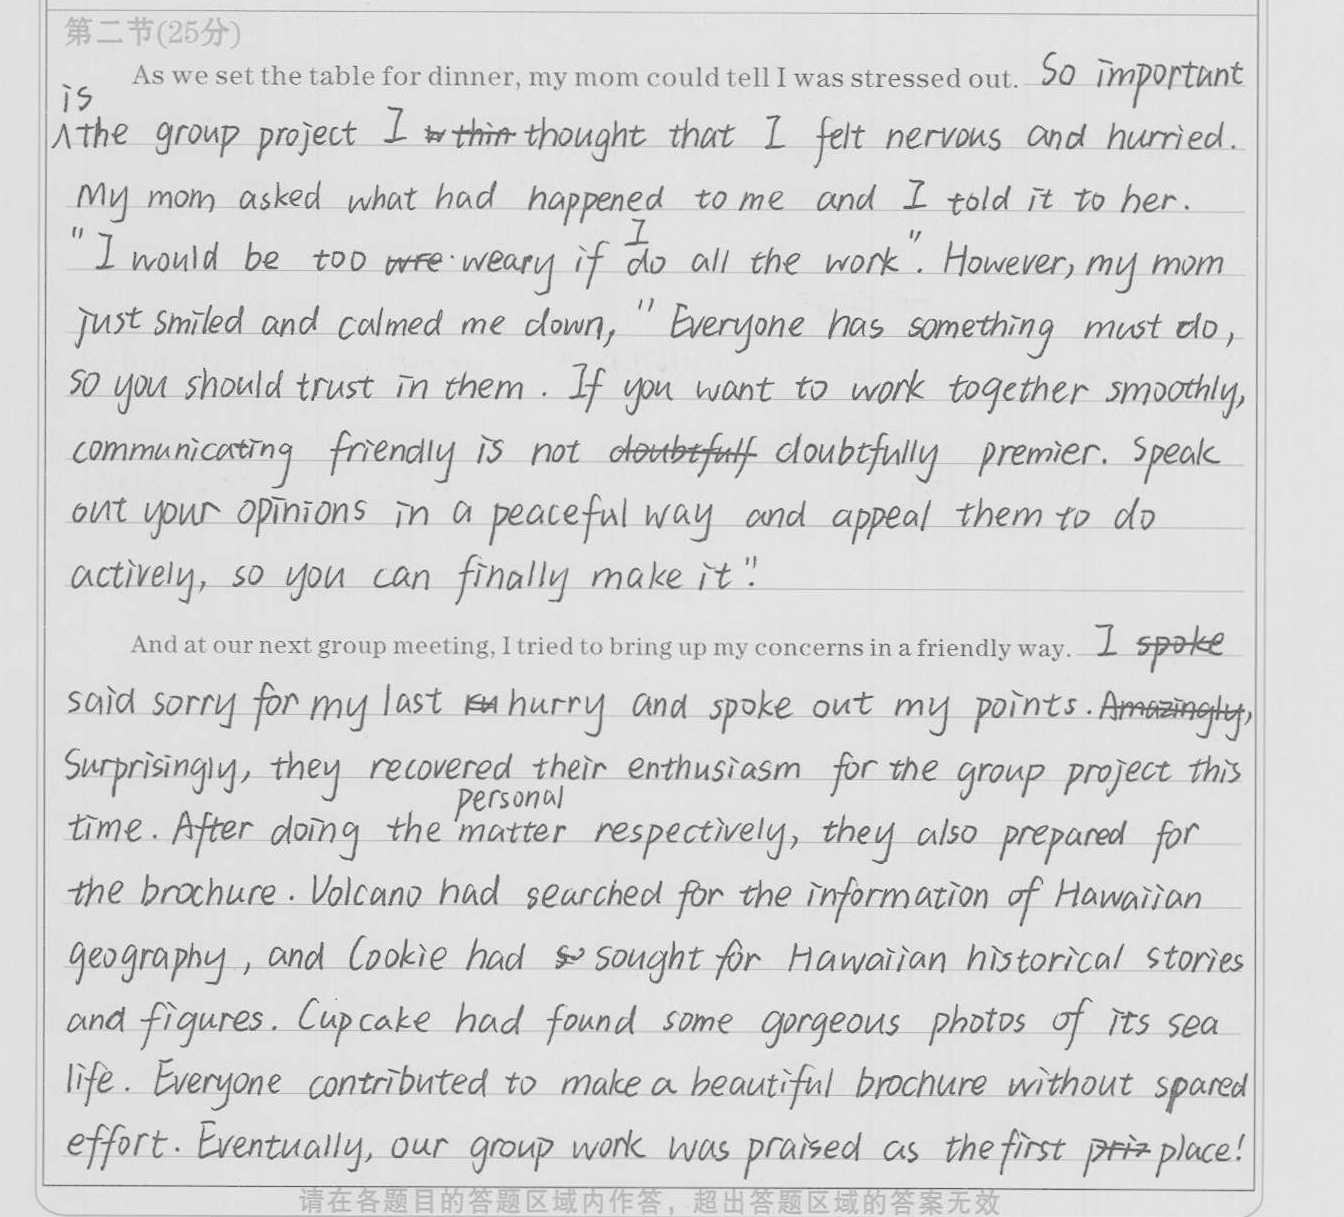 第二节(25分)
As we set the table for dinner, my mom could tell I was stressed out. So important
is
∧the group project I thought that I felt nervous and hurried.
My mom asked what had happened to me and I told it to her.
I
"I would be too weary if do all the work". However, my mom
just smiled and calmed me down, "Everyone has something must do,
so you should trust in them. If you want to work together smoothly,
communicating friendly is not doubtfully premier. Speak
out your opinions in a peaceful way and appeal them to do
actively, so you can finally make it".
And at our next group meeting, I tried to bring up my concerns in a friendly way. I spoke
said sorry for my last hurry and spoke out my points. Amazingly,
Surprisingly, they recovered their enthusiasm for the group project this
personal
time. After doing the matter respectively, they also prepared for
the brochure. Volcano had searched for the information of Hawaiian
geography, and Cookie had sought for Hawaiian historical stories
and figures. Cupcake had found some gorgeous photos of its sea
life. Everyone contributed to make a beautiful brochure without spared
effort. Eventually, our group work was praised as the first place!
请在各题目的答题区域内作答，超出答题区域的答案无效